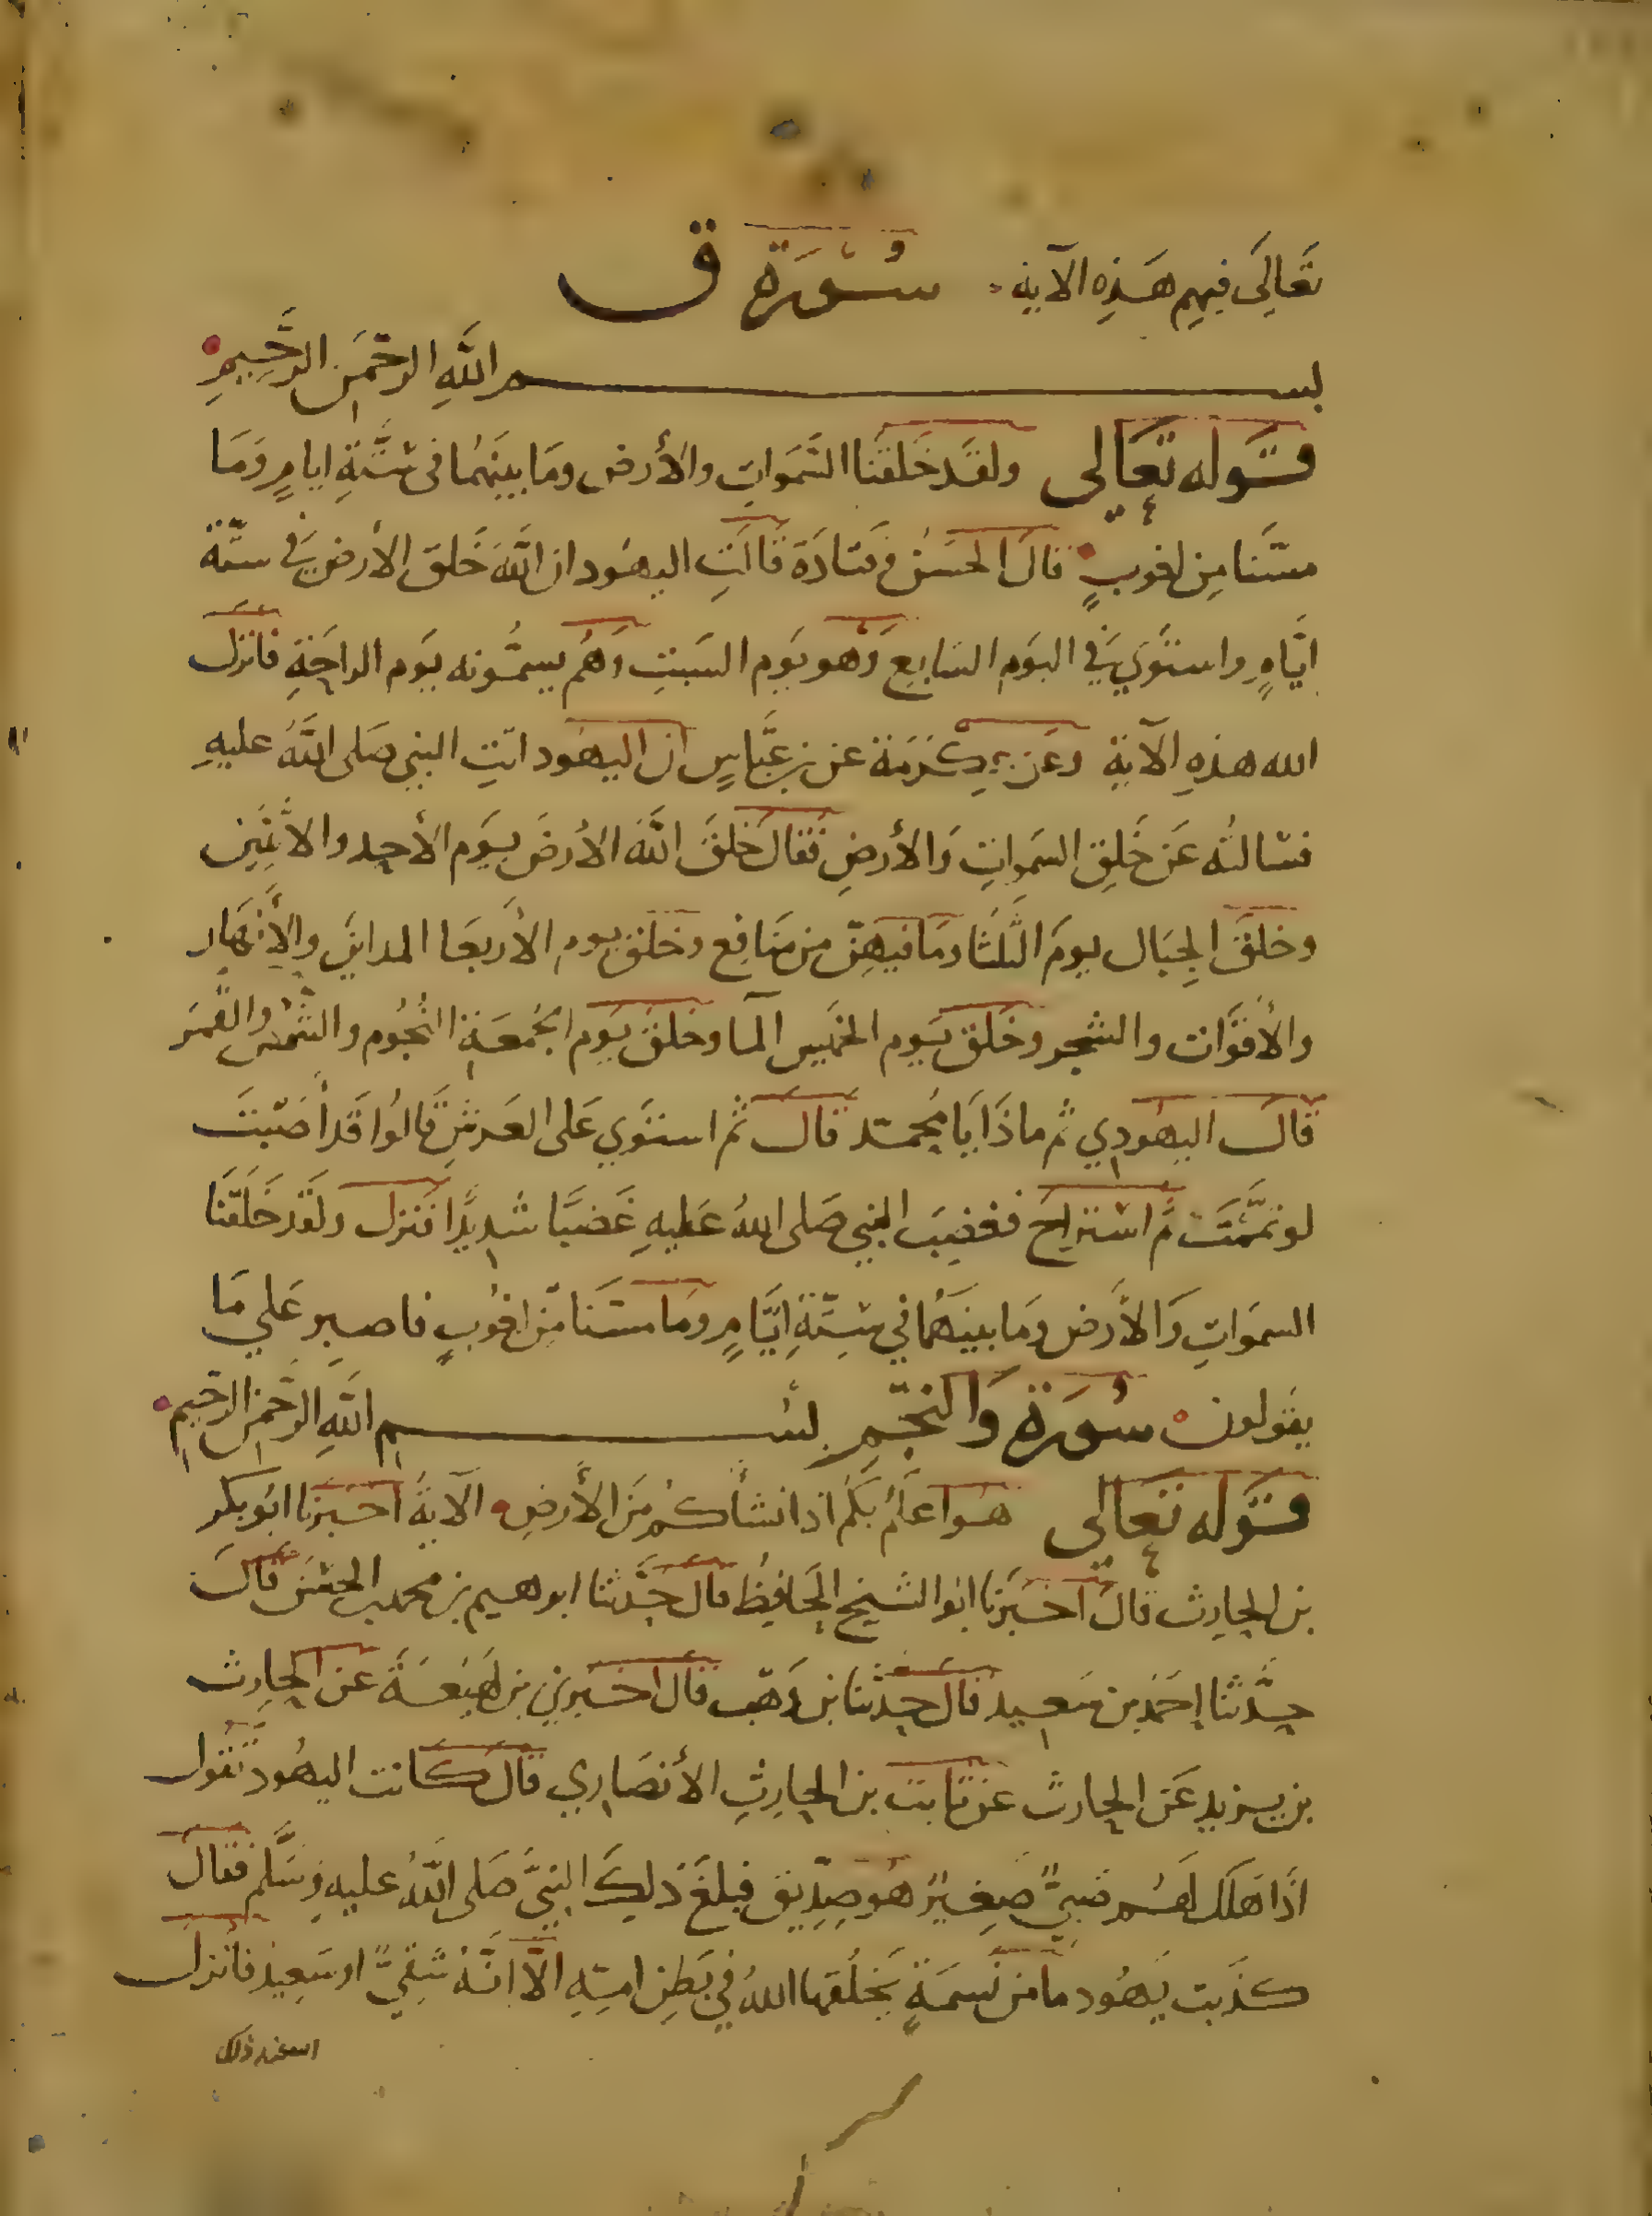 تَعَالَى فيهِم هَذِهِ الآية سُوْرَة ق
بسم اللَّهِ الرحْمَنِ الرَّحِيمِ
قَوله تعَالى ولقَد خَلقنَا السَّمَواتِ والأرض ومَا بينَهُمَا فى سِتَّةِ ايامٍ وَمَا
مسَّنَا مِن لغوبٍ قالَ الحسَنُ وقتادَةَ قالَتِ اليهُود ان اللَّهَ خَلق الأرض في ستّة
ايَّامٍ واستَوَي في اليَوم السَابِعِ وَهو يَوم السَبتِ وَهُم يسمُّونه يوَم الراحَةِ فانزل
الله هذهِ الآية وعَن عِكرَمَة عن بن عبَّاسٍ ان اليهُود اتتِ النبي صَلى اللَّهُ عليهِ
فسَالتُه عَن خَلقِ السَمواتِ وَالأرضِ فقَال خَلقَ اللَّهُ الأرضَ يوَم الأحِد والاثنَين
وخلقَ الجِبَال يومَ الثَّلَثَا ومَا فيهِنّ من منَافع وخلق يوم الأربعَا المداين والأنهَار
والأقوَات والشجر وخَلق يَوم الخَميس المآ وخلقَ يَوم الجُمعَةِ النُجُوم والشَمْس والقَمَر
قالَ اليهُودي ثم ماذَا يَا مُحمّد قالَ ثم استوَي عَلى العَرشِ قالوُا قَد أصَبتَ
لو تمَّمتَ ثم استرَاحَ فغضِبَ النبي صَلى اللهُ عَليهِ غَضبًا شدِيدًا فنزل ولَقد خَلَقنَا
السموَاتِ وَالأرض ومَا بينَهُمَا في سِتَّةِ ايَّامٍ ومَا مسّنَا مِن لغُوبٍ فاصبِر عَلي مَا
يقولون سُورَة وَالنجمِ بسم اللَّهِ الرَّحمَنِ الرحِيم
قَوله تعَالى هُو اعلَم بكُم اذ انشأكُم مِنَ الأرضِ الآية أخبَرنا ابُو بكر
بن الحارِث قال اخبَرنَا ابو الشيخ الحَافِظُ قال حدَّثنا ابرهيم بن محمد بن الحسَن قالَ
حدَّثنا احمَد بن سَعيد قال حدثنا بن وَهب قال اخبرني بن لَهيعَة عَن الحارِث
بن يزيد عَن الحارث عن ثابت بن الحارِثِ الأنصَاري قال كانت اليهُود تقُول
اذَا هَلكَ لهُم صَبيٌّ صغِيرٌ هُو صِدِّيق فبلغَ ذلِكَ النبيَّ صَلى اللَّهُ عليهِ وَسَلَّم فقَال
كذَبت يهُود ما من نَسمَةٍ يخلُقها اللهُ في بَطنِ امِّهِ الَّا انَّهُ شَقِيٌّ او سَعِيد فانزل
الله عند ذلك